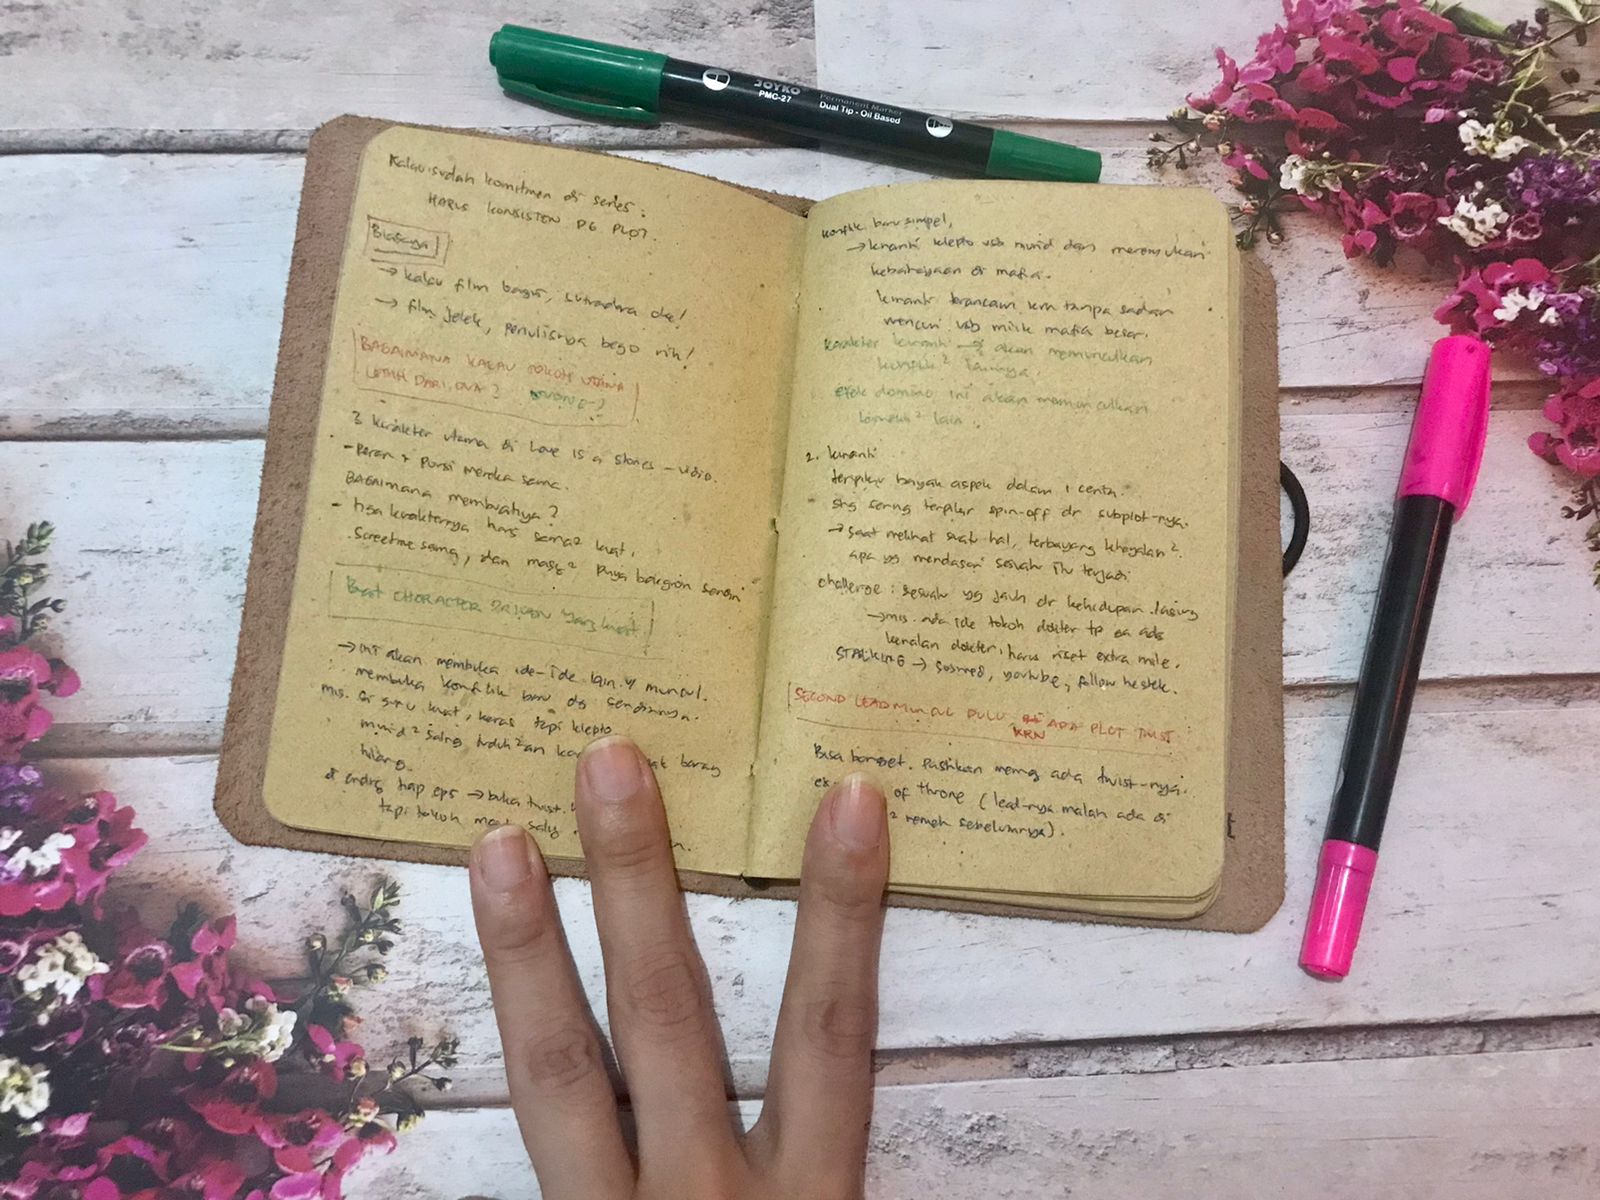 JOYKO
PMC-27
Permanent Marker
Dual Tip - Oil Based
Kalau sudah komitmen di series :
HARUS KONSISTEN DG PLOT.
Biasanya
→ kalau film bagus, sutradara oke!
→ film jelek, penulisnya bego nih!
BAGAIMANA KALAU TOKOH UTAMA
LEBIH DARI DUA ?
3 karakter utama di Love is a Story -
- Peran + Porsi mereka sama.
BAGAIMANA membuatnya ?
- tiga karakternya harus sama² kuat,
screentime sama, dan masing² punya sendiri
Buat CHARACTER yang kuat
→ ini akan membuka ide-ide lain yg muncul.
membuka konflik baru dg sendirinya.
mis. si guru kuat, keras tapi klepto
murid² saling tuduh²an barang
hilang.
di ending tiap eps → buka twist.
tapi tokoh
konflik baru simpel,
→ kinanti klepto murid dan menemukan
kebahayaan di mafia.
kinanti terancam krn tanpa sadar
mencuri usb milik mafia besar.
karakter kinanti → akan memunculkan
konflik² lainnya.
efek domino ini akan memunculkan
lain.
2. kinanti
terpikir banyak aspek dalam 1 cerita.
shg sering terpikir spin-off dr subplot-nya.
→ saat melihat suatu hal, terbayang khayalan².
apa yg mendasari sesuatu itu terjadi
challenge : sesuatu yg jauh dr kehidupan
→ mis. ada ide tokoh dokter tp ga ada
kenalan dokter, harus riset extra mile.
STALKING → sosmed, youtube, follow hestek.
SECOND LEAD MUNCUL DULU KRN ADA PLOT TWIST
Bisa banget. Pastikan memg ada twist-nya.
of throne (lead-nya malah ada di
² remeh sebelumnya).